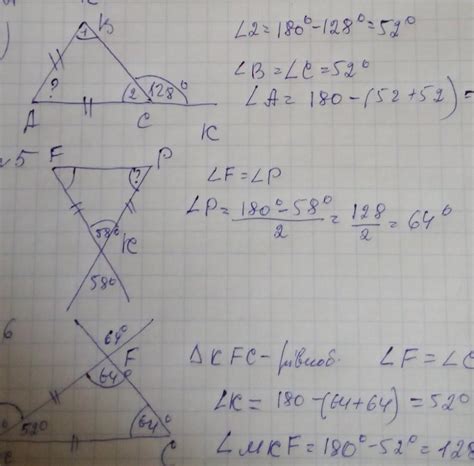 B
1
?
2
128°
A
C
K
∠2=180°-128°=52°
∠B=∠C=52°
∠A=180-(52+52)=
5
F
P
?
58°
K
58°
∠F=∠P
∠P=180°-58°/2=128/2=64°
6
64°
F
64°
52°
64°
C
ΔKFC-рівноб. ∠F=∠C
∠K=180-(64+64)=52°
∠MKF=180°-52°=128